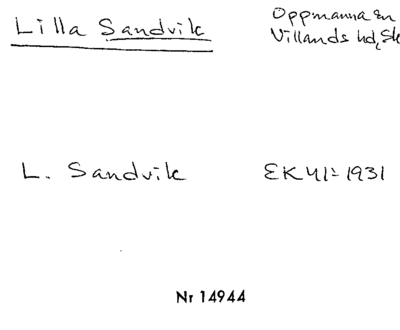 Lilla Sandvik
Oppmanna sn
Villands hd, Sk
L. Sandvik
EK 41:1931
Nr 14944